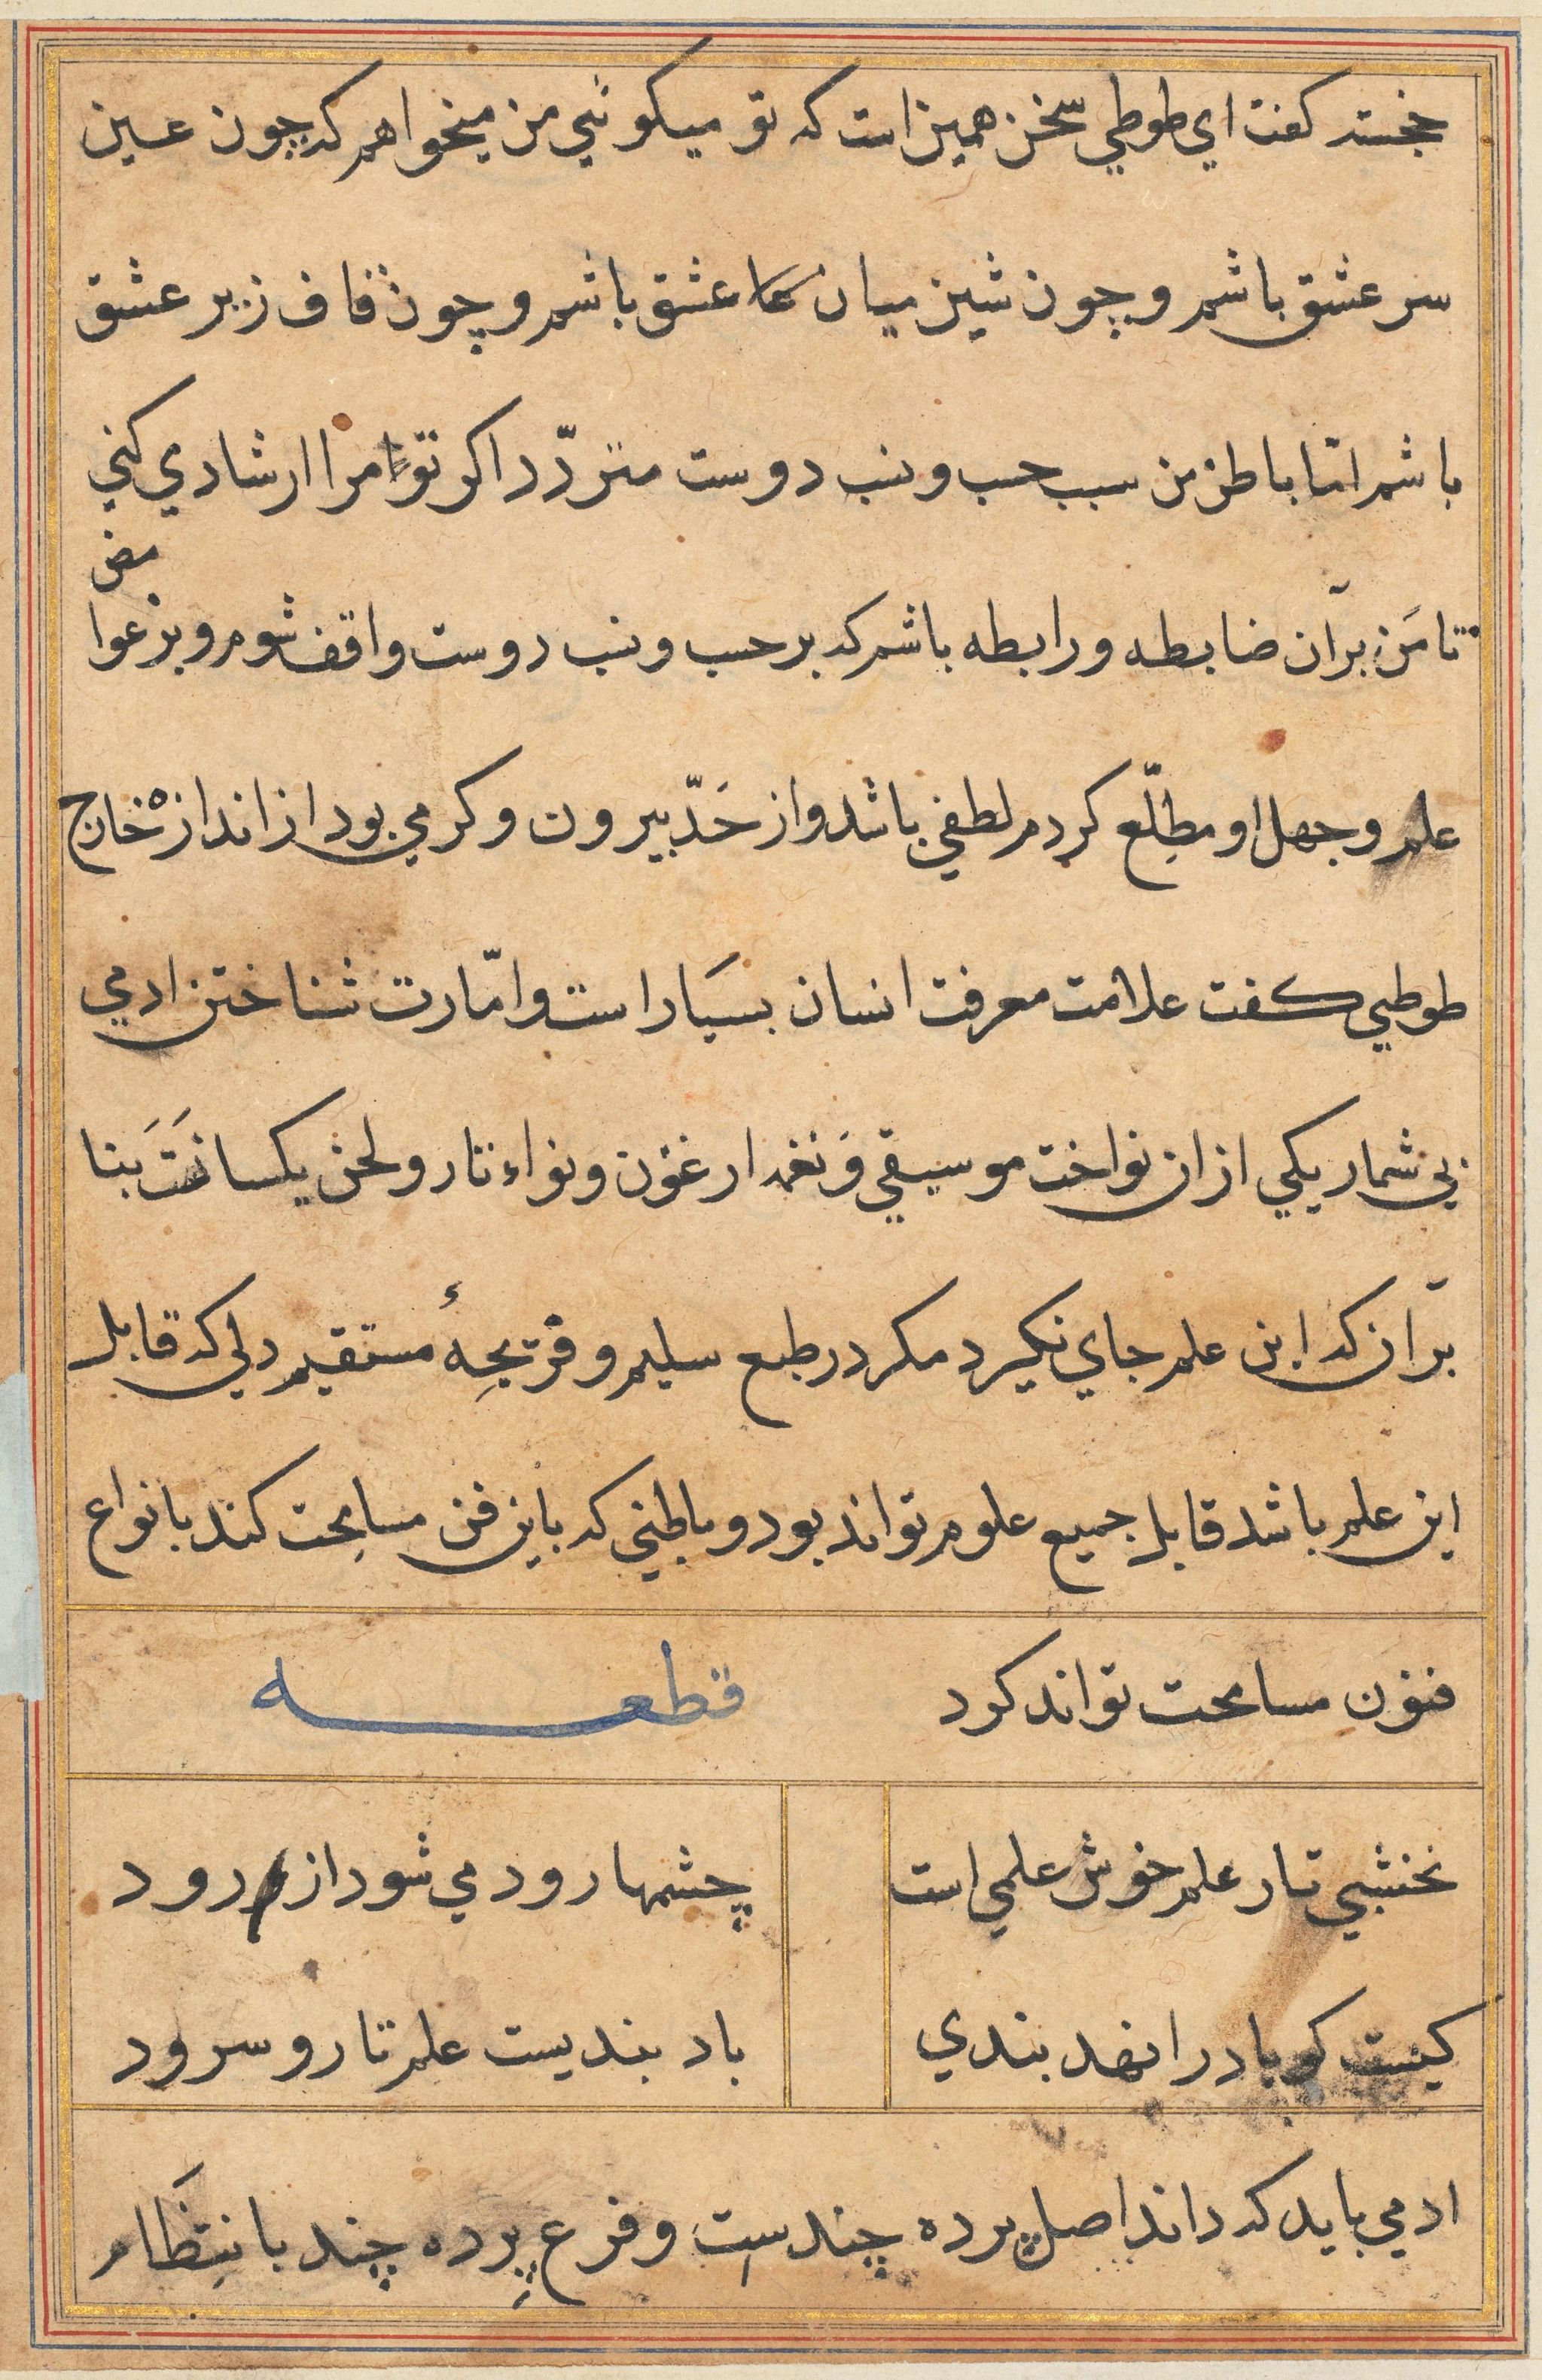 خجسته كفت اي طوطي سخن همين است كه تو ميكوئي من ميخواهم كه چون عين
سر عشق باشم و چون شين ميان عشق باشم و چون قاف زير عشق
باشم اما باطن من سبب حسب و نسب دوست متردّد اكر تو مرا ارشادي كني
تا مَن برآن ضابطه و رابطه باشم كه بر حسب و نسب دوست واقف شوم و بر غوامض
علم و جهل او مطلّع كردم لطفي باشد و از حَدّ بيرون و كرمي بود از اندازه خارج
طوطي كفت علامت معرفت انسان بسيَار است و امّارت شناختن ادمي
بي شمار يكي ازان نواخت موسيقي وَ نغمه ارغنون و نواء تار و لحن يكسانَتَ بنا
برآن كه اين علم جاي نكيرد مكر در طبع سليم و قريحِهٔ مستقيم دلي كه قابل
اين علم باشد قابل جميع علوم تواند بود و باطني كه باين فن مسامحت كند بانواع
فنون مسامحت تواند كرد
قطعه
نخشبي تار علم خوش علمي است
چشمها رود مي شود از رود
كيست كو باد را نهد بندي
باد بنديست علم تار و سرود
ادمي بايد كه داند اصل پرده چندست و فرع پرده چند با نتِظَام